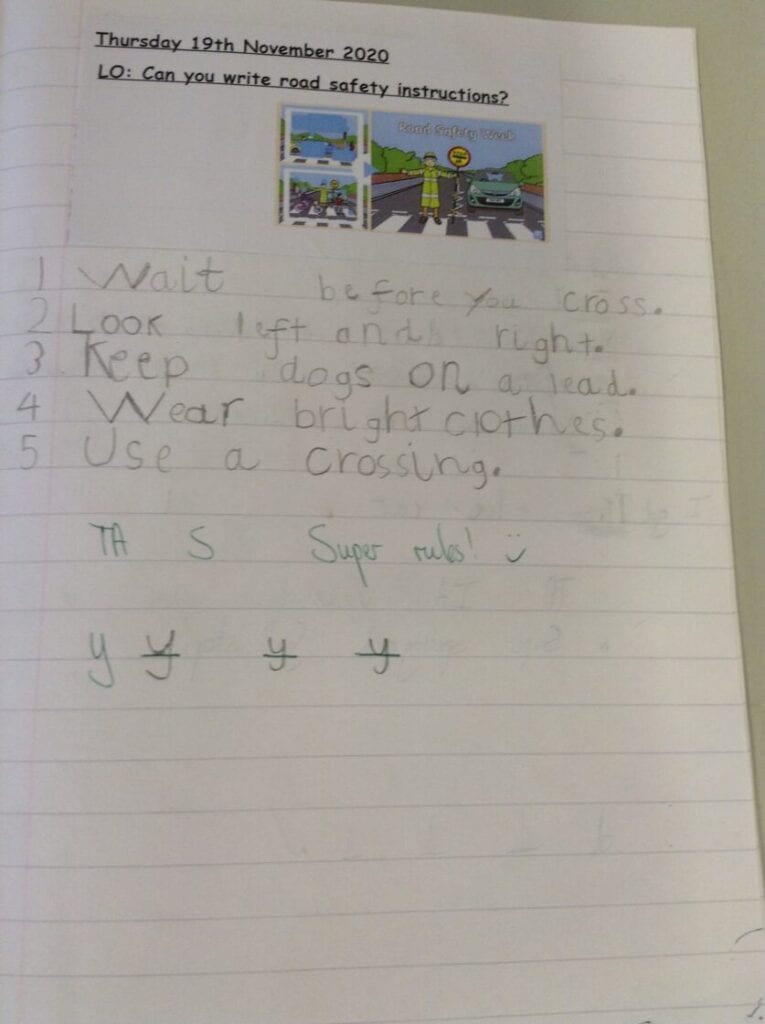 Thursday 19th November 2020
LO: Can you write road safety instructions?
Road Safety Week
1 Wait before you cross.
2 Look left and right.
3 Keep dogs on a lead.
4 Wear bright clothes.
5 Use a crossing.
TA S Super rules!
y y y y